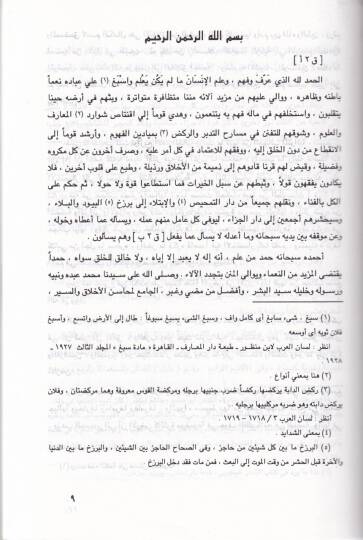 بسم الله الرحمن الرحيم
[ ق ٢ أ ]
الحمد لله الذي عَرَّفَ وفهم ، وعلم الإنسَانَ ما لم يكُن يَعْلم واسْبَغَ (١) على عباده نعماً
باطنه وظاهره ، ووالى عليهم من مزيد آلائه مننا متظافرة متواترة ، وبثهم فى أرضه حينا
يتقلبون ، واستخلفهم فى ماله فهم به يتنعمون ، وهدى قوماً إلى اقتناص شوارد (٢) المعارف
والعلوم ، وشوقهم للتفنن فى مسارح التدبر والركض (٣) بميادين الفهوم ، وأرشد قوماً إلى
الانقطاع من دون الخلق إليه ، ووفقهم للاعتماد فى كل أمر عليه ، وصرف أخرين عن كل مكرومة
وفضيلة ، وقيض لهم قرنا قادوهم إلى ذميمة من الأخلاق ورذيلة ، وطبع على قلوب آخرين ، فلا
يكادون يفقهون قولاً ، وثبطهم عن سبل الخيرات فما استطاعوا قوة ولا حولا ، ثم حكم على
الكل بالفناء ، ونقلهم جميعاً من دار التمحيص (٤) والابتلاء إلى برزخ (٥) البيود والبلاء ،
وسيحشرهم أجمعين إلى دار الجزاء ، ليوفى كل عامل منهم عمله ، ويسأله عما أعطاه وخوله ،
وعن موقفه بين يديه سبحانه وما أعدله لا يسأل عما يفعل [ ق ٢ ب ] وهم يسألون .
أحمده سبحانه حمد من علم ، أنه إله لا يعبد إلا إياه ، ولا خالق للخلق سواه ، حمداً
يقتضى المزيد من النعماء ويوالى المنن بتجدد الآلاء . وصلى الله على سيدنا محمد عبده ونبيه
ورسوله وخليله سيد البشر ، وأفضل من مضى وغبر ، الجامع لمحاسن الأخلاق والسير ،
(١) سبغ : شىء سابغ أى كامل واف ، وسبغ الشئ، يسبغ سبوغاً : طال إلى الأرض واتسع ، وأسبغ
فلان ثوبه أى أوسعه .
انظر : لسان العرب لابن منظور - طبعة دار المعارف - القاهرة مادة سبغ ، المجلد الثالث ١٩٢٧ -
١٩٢٨ .
(٢) هنا بمعنى أنواع .
(٣) ركض الدابة يركضها ركضاً ضرب جنبيها برجله ومركضة القوس معروفة وهما مركضتان ، وفلان
يركض دابته وهو ضربه مركليها برجليه .
أنظر : لسان العرب ٣ / ١٧١٨ - ١٧١٩
(٤) بمعنى الشدايد .
(٥) البرزخ ما بين كل شيئين من حاجز ، وفى الصحاح الحاجز بين الشيئين ، والبرزخ ما بين الدنيا
والآخرة قبل الحشر من وقت الموت إلى البعث ، فمن مات فقد دخل البرزخ .
٩